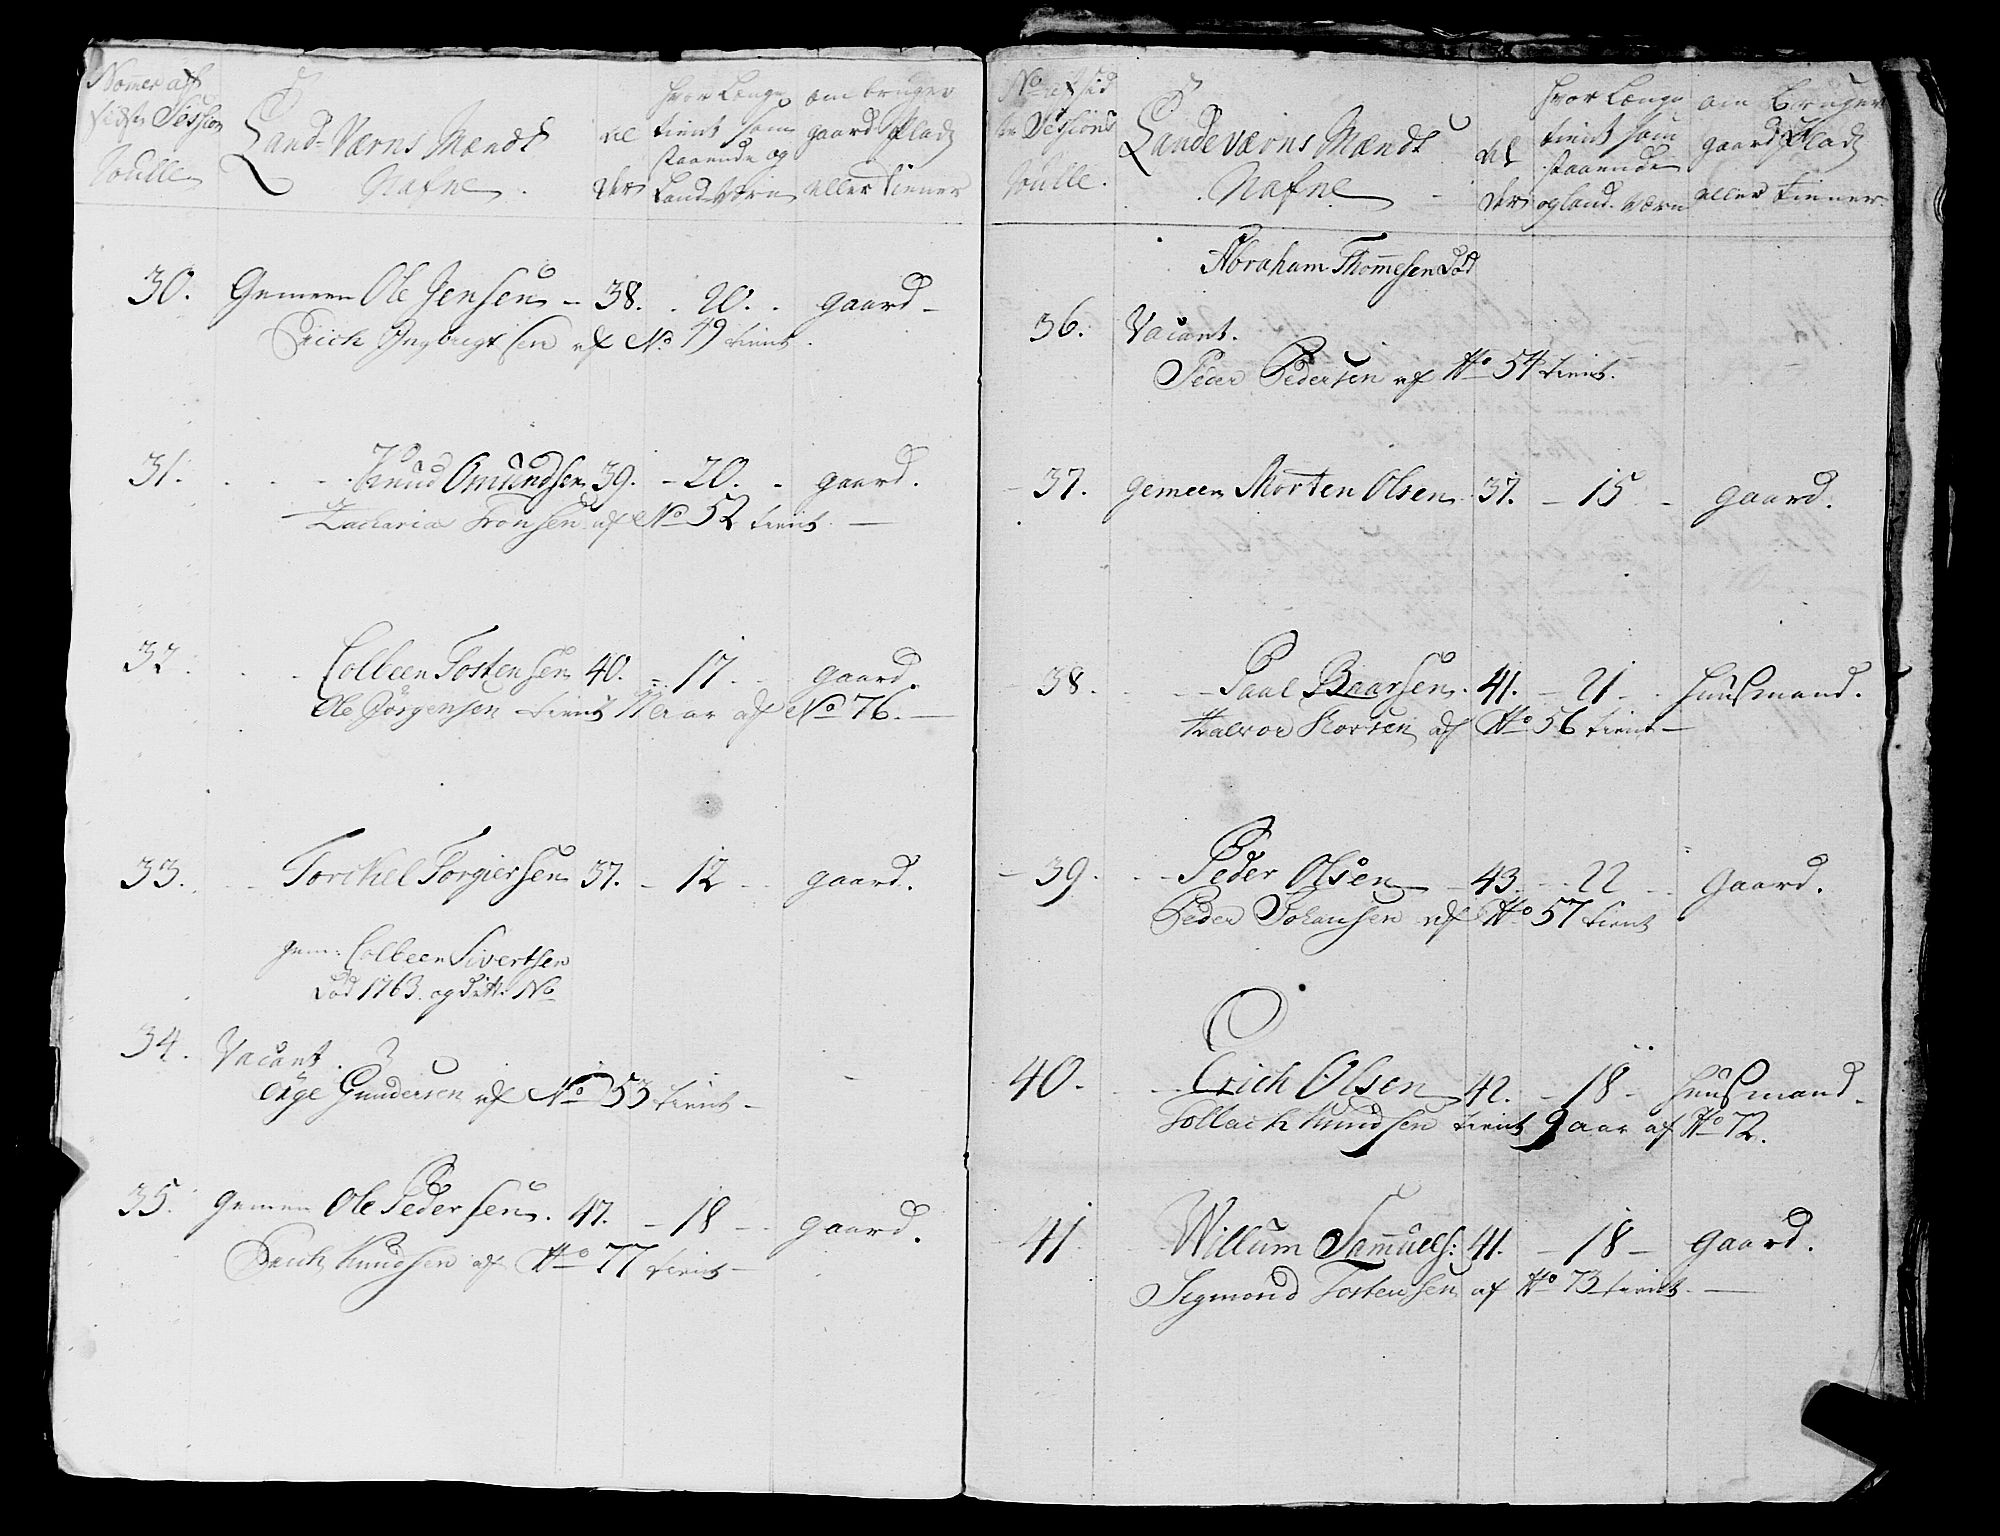 Nomer aff
sidste Session
Rulle
Land-Værns Mændz
Nafne.
Al
der
hvor Længe
tient som
staaende og
Land-Værn
om bruger
gaard Pladz
eller tiener
30. Gemeen Ole Jensen - 38. . 20. . gaard -
Erich Ingbrigtsen af No 49 tient.
31. Knud Omundsen 39. - 20. . gaard.
Zacharias Tronsen af No 52 tient. -
32. Colbeen Tostensen 40. - 17. gaard.
Ole Jörgensen tient 11 Aar af No 76. -
33. Torchel Torgiersen 37. - 12 gaard.
gem: Colbeen Sivertsen
Död 1763. og dette No
34. Vacant.
Aage Gundersen af No 53 tient -
35. gemeen Ole Pedersen. 47. - 18 - gaard.
Erich Knudsen af No 77 tient -
No af sid
ste Sessions
Rulle.
Landeværns Mændz
Nafne
Al
der
hvor Længe
tient som
staaende
og land-Værn
om Bruger
gaard Pladz
eller tiener.
Abraham Thommesen Död
36. Vacant.
Peder Pedersen af No 54 tient.
37. gemeen Morten Olsen 37. - 15 - gaard.
38. Paal Baarsen. 41. - 21 - huusmand.
Halvor Korsen af No 56 tient -
39. Peder Olsen - 43. - 22 gaard.
Peder Johansen af No 57 tient
40. Erich Olsen 42. - 18 - huusmand.
Tollach Knudsen tient 9 aar af No 72.
41 Willum Samuels: 41. - 18 - gaard.
Sigmond Tostensen af No 73 tient. -